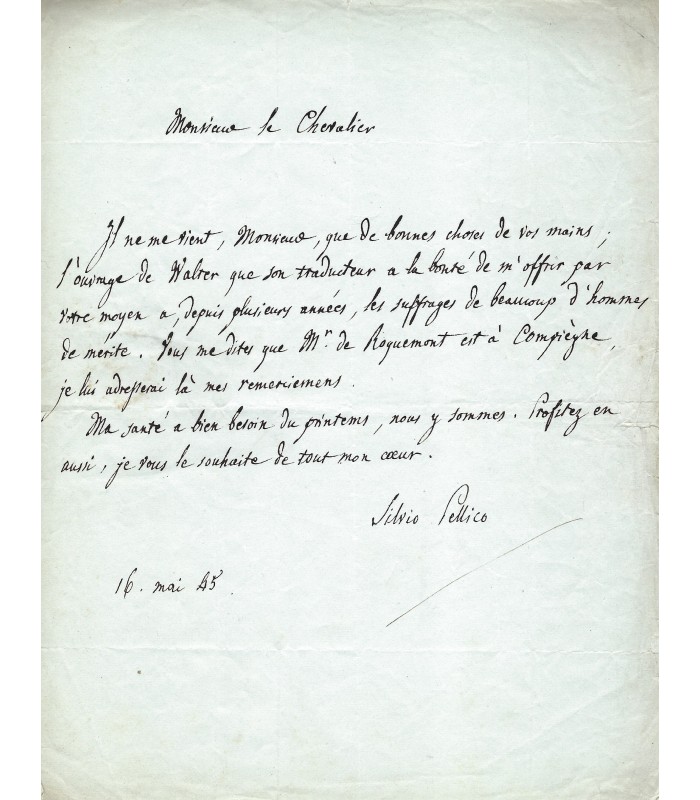 Monsieur le Chevalier
Il ne me vient, Monsieur, que de bonnes choses de vos mains ;
l'ouvrage de Walter que son traducteur a la bonté de m'offrir par
votre moyen a, depuis plusieurs années, les suffrages de beaucoup d'hommes
de mérite. Vous me dites que Mr. de Roquemont est à Compiègne,
je lui adresserai là mes remerciemens.
Ma santé a bien besoin du printems, nous y sommes. Profitez en
aussi, je vous le souhaite de tout mon cœur.
Silvio Pellico
16. mai 45.